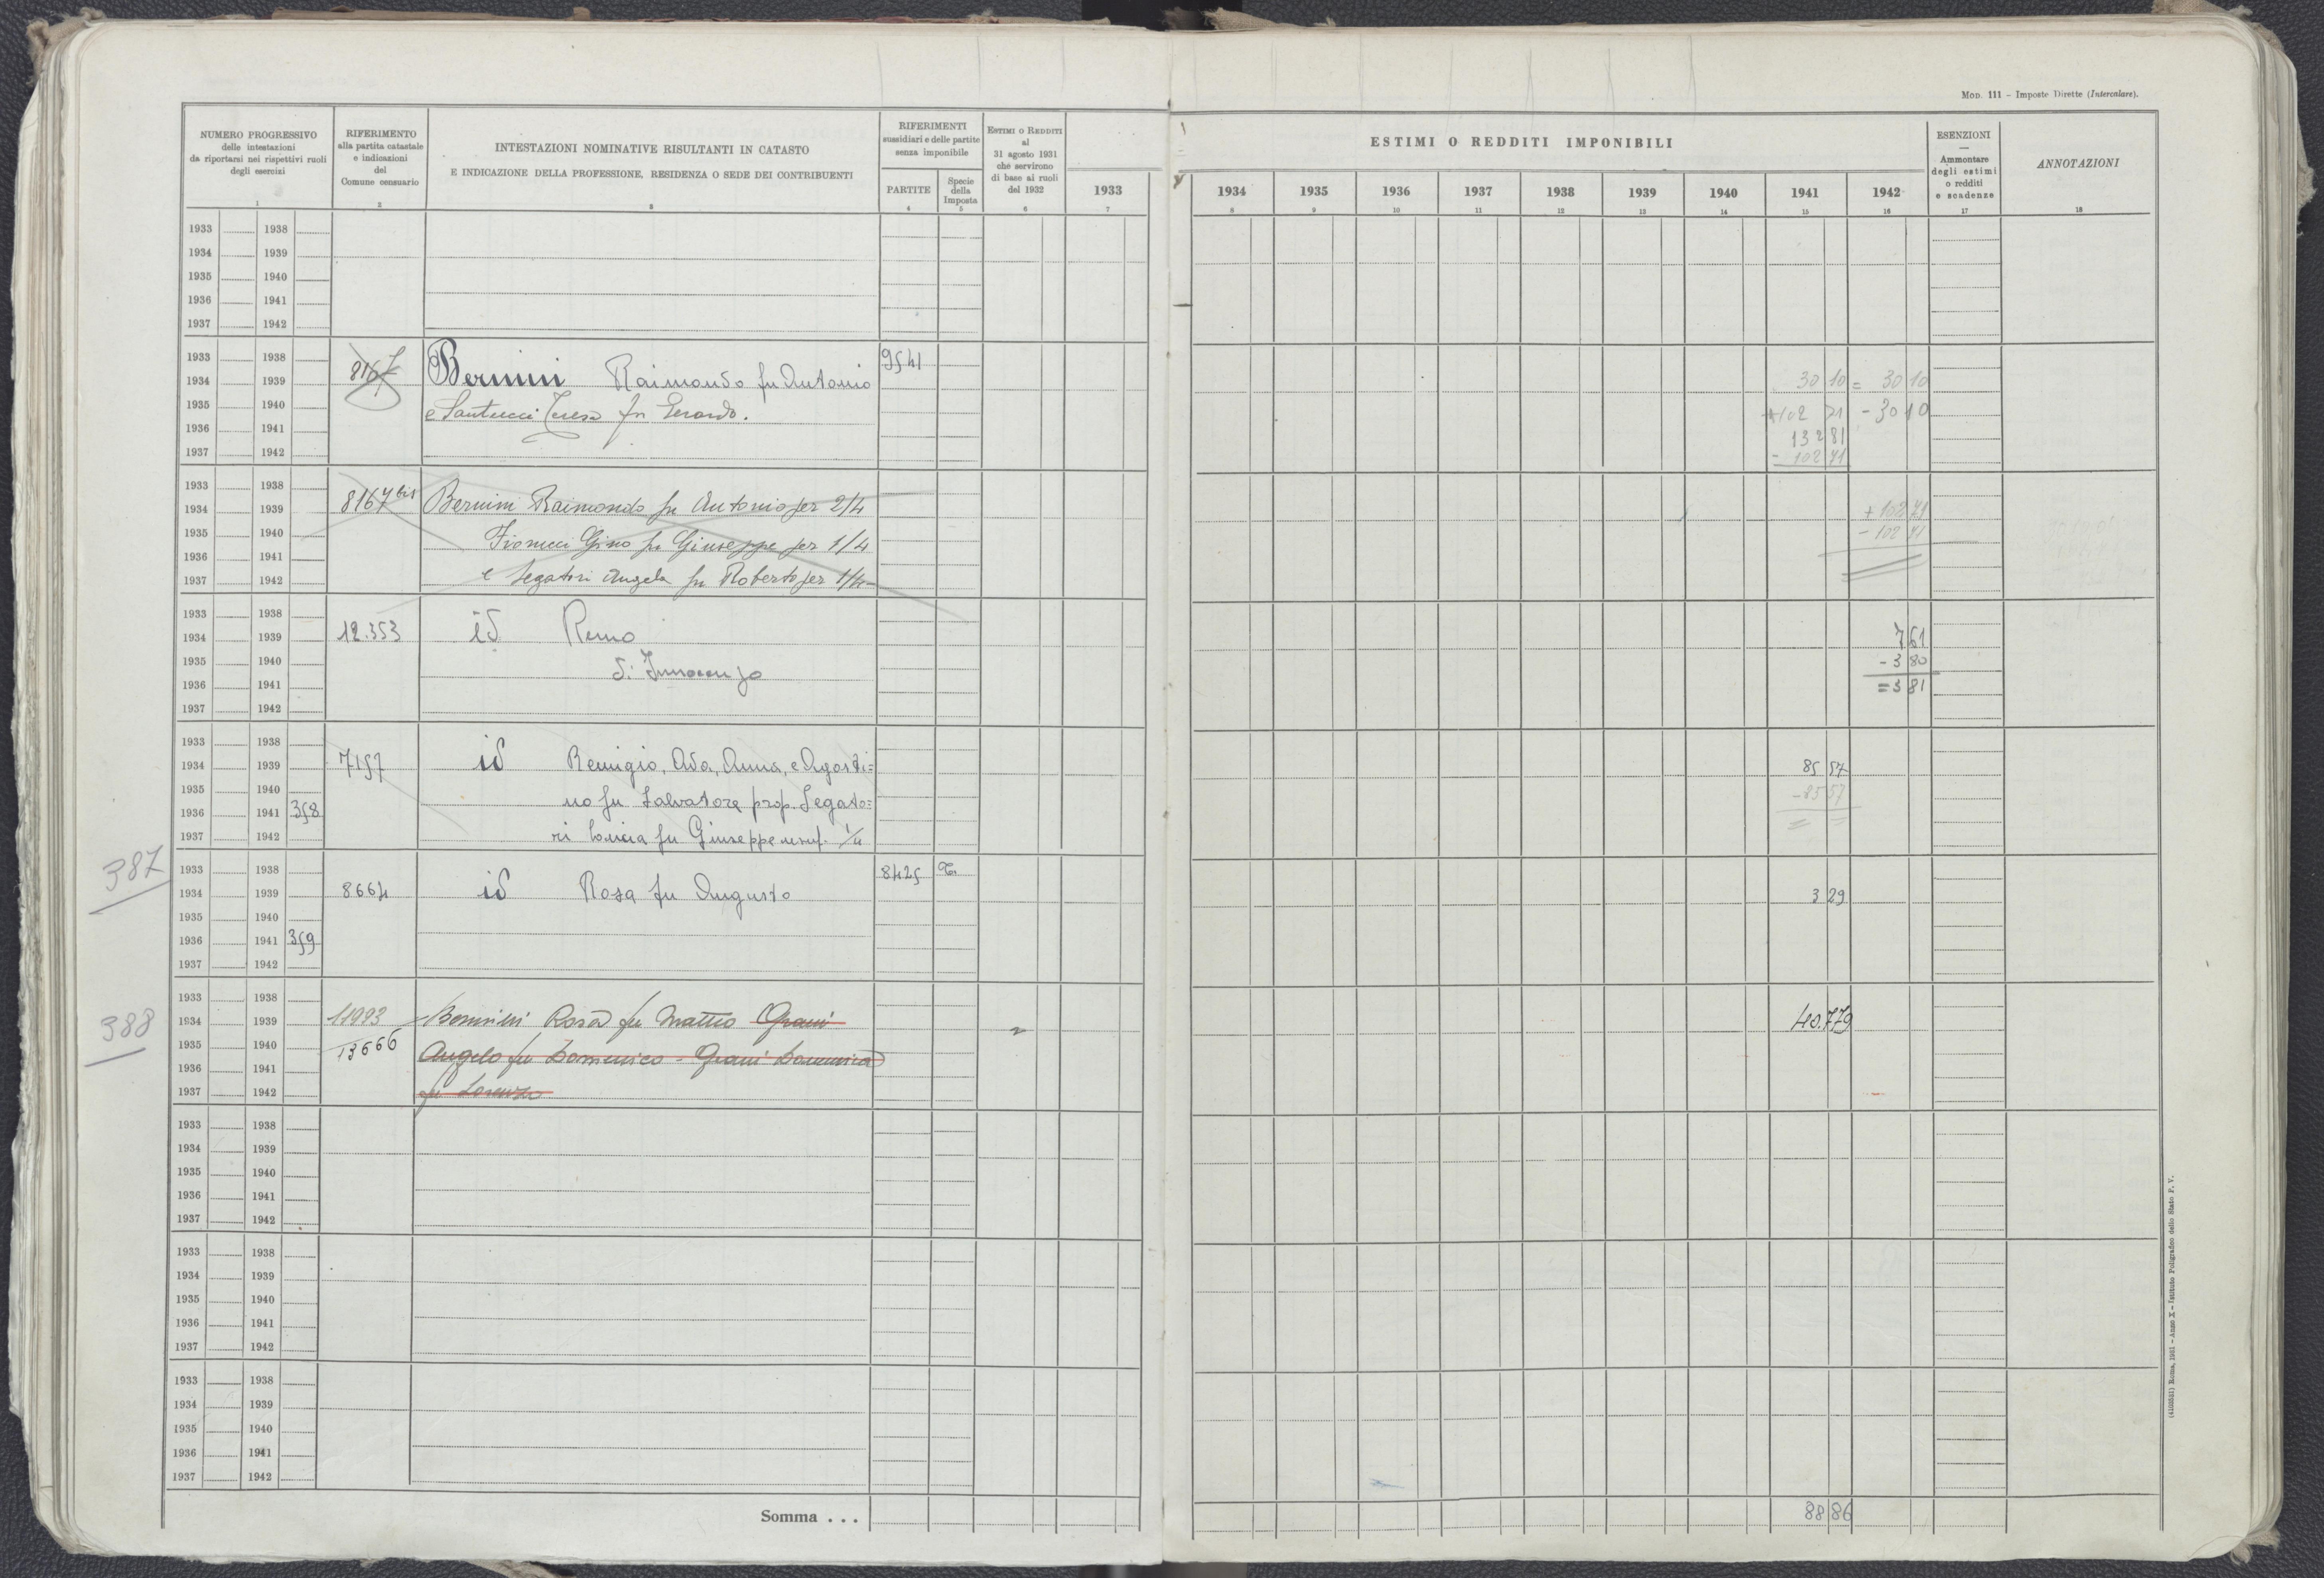 Mod. 111 - Imposte Dirette (Intercalare).
NUMERO PROGRESSIVO
delle intestazioni
da riportarsi nei rispettivi ruoli
degli esercizi
1
RIFERIMENTO
alla partita catastale
e indicazioni
del
Comune censuario
2
INTESTAZIONI NOMINATIVE RISULTANTI IN CATASTO
E INDICAZIONE DELLA PROFESSIONE, RESIDENZA O SEDE DEI CONTRIBUENTI
3
RIFERIMENTI
sussidiari e delle partite
senza imponibile
PARTITE
4
Specie
della
Imposta
5
ESTIMI O REDDITI
al
31 agosto 1931
che servirono
di base ai ruoli
del 1932
6
1933
7
ESTIMI O REDDITI IMPONIBILI
1934 1935 1936 1937 1938 1939 1940 1941 1942
8 9 10 11 12 13 14 15 16
ESENZIONI
—
Ammontare
degli estimi
o redditi
e scadenze
17
ANNOTAZIONI
18
1933 1938
1934 1939
1935 1940
1936 1941
1937 1942
1933 1938 9541
1934 1939 8167 Bernini Raimondo fu Antonio 30 10 = 30 10
1935 1940 e Santucci Teresa fu Gerardo. +102 71 - 30 10
1936 1941 132 81
1937 1942 - 102 71
1933 1938
1934 1939 8167 bis Bernini Raimondo fu Antonio per 2/4 + 102 71
1935 1940 Gino fu Giuseppe per 1/4 - 102 71
1936 1941
1937 1942 e Segatori Angela fu Roberto per 1/4
1933 1938
1934 1939 12.353 id Remo 7 61
1935 1940 di Innocenzo - 3 80
1936 1941 = 3 81
1937 1942
1933 1938
1934 1939 7157 id Remigio, Ada, Anna, e Agosti= 85 57
1935 1940 - 85 57
1936 1941 358 no fu Salvatore prop. Segato=
1937 1942 ri fu Giuseppe usuf. 1/4
387
1933 1938 8425
1934 1939 8664 id Rosa fu Augusto 3 29
1935 1940
1936 1941 359
1937 1942
388
1933 1938
1934 1939 11993 Bernini Rosa fu Matteo Grani 40.779
1935 1940 13666 Angelo fu Domenico - Grani Domenica
1936 1941
1937 1942 fu Lorenzo
1933 1938
1934 1939
1935 1940
1936 1941
1937 1942
1933 1938
1934 1939
1935 1940
1936 1941
1937 1942
1933 1938
1934 1939
1935 1940
1936 1941
1937 1942
Somma . . . 88 86